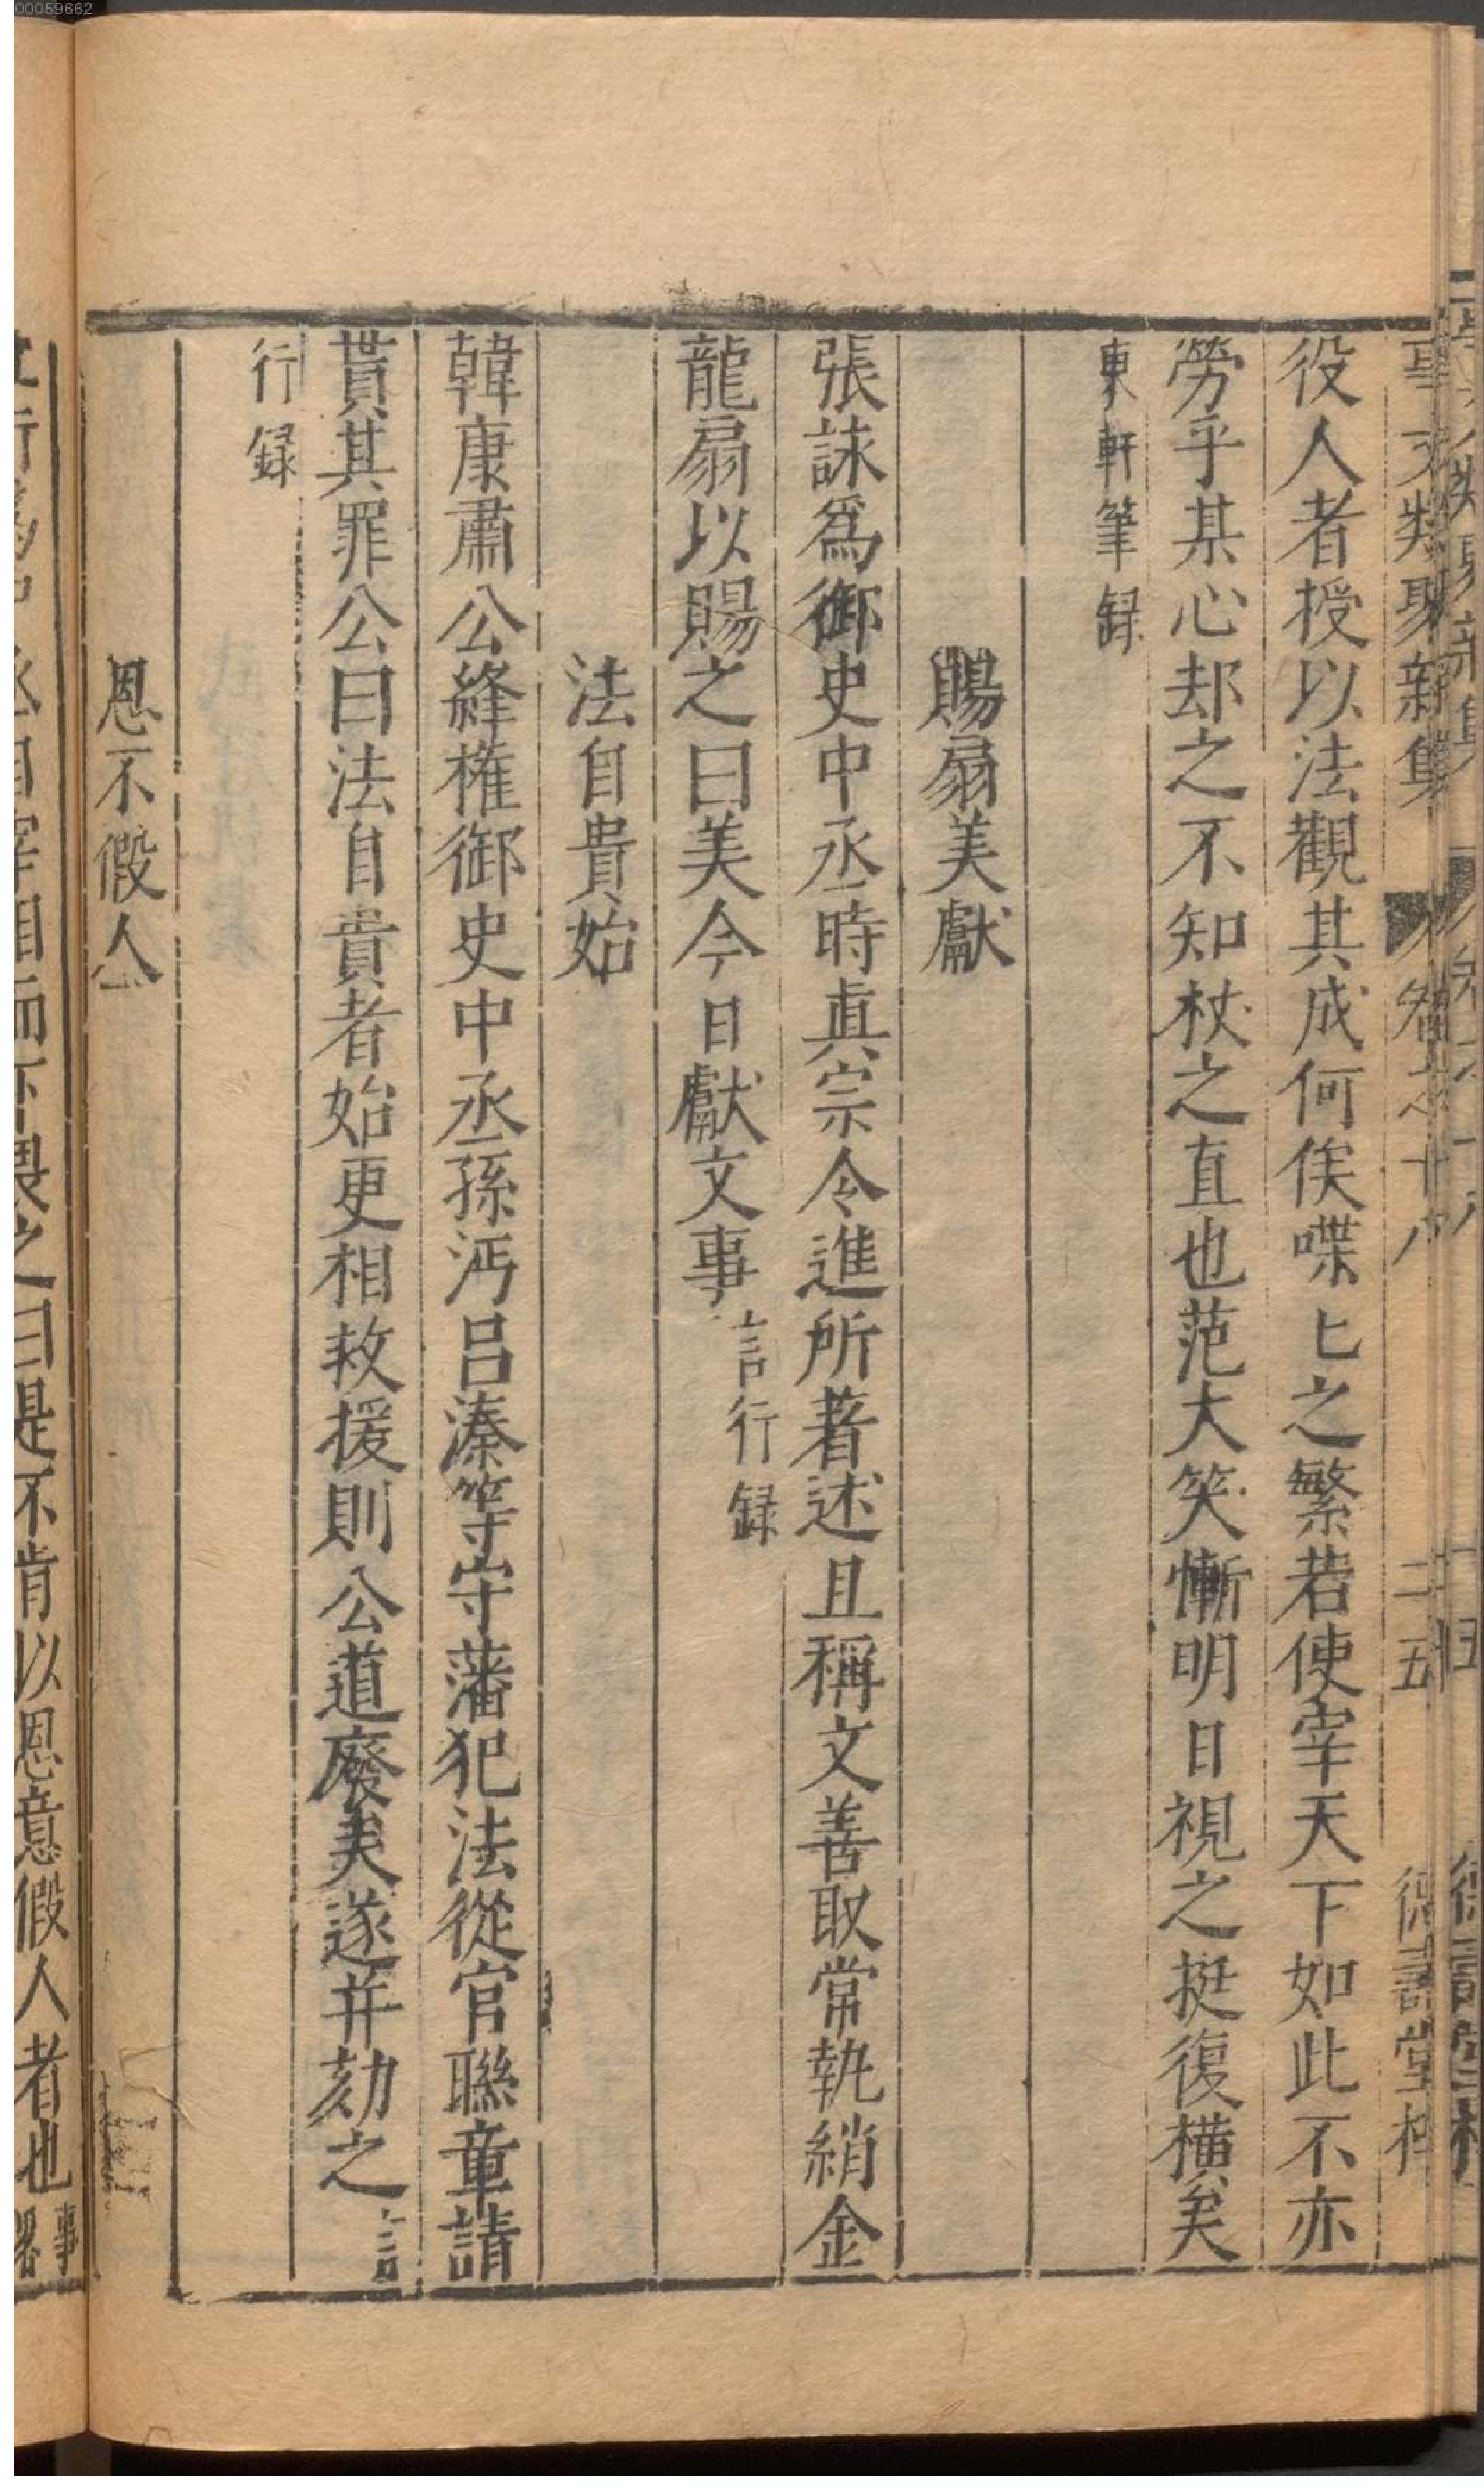 00059662
事文類聚新集 卷之十八 二五 德壽堂梓
役人者授以法觀其成何俟喋匕之繁若使宰天下如此不亦
勞乎某心却之不知杖之直也范大笑慚明日視之挺復橫矣
東軒筆録
賜扇美獻
張詠爲御史中丞時眞宗令進所著述且稱文善取常執綃金
龍扇以賜之曰美今日獻文事言行録
法自貴始
韓康肅公絳權御史中丞孫沔吕溱等守藩犯法從官聯章請
貰其罪公曰法自貴者始更相救援則公道廢矣遂并劾之言
行録
恩不假人
而不畏之曰是不肯以恩意假人者也事畧